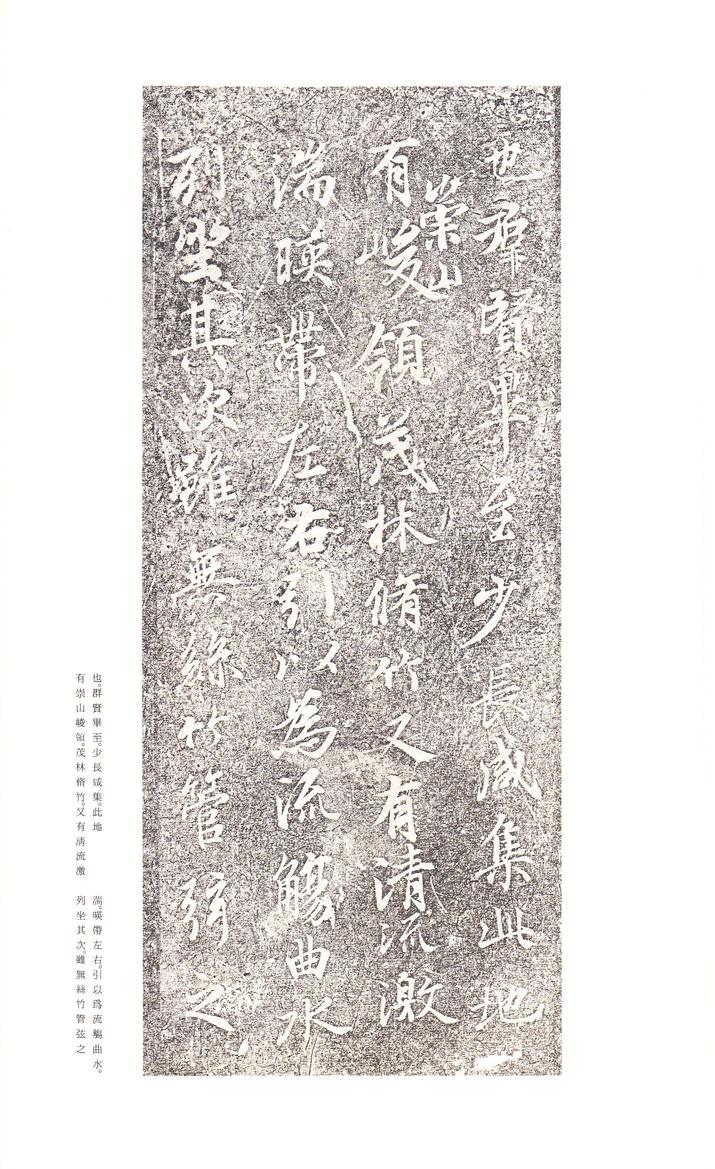 也群賢畢至少長咸集此地
有崇山峻領茂林脩竹又有清流激
湍暎帶左右引以為流觴曲水
列坐其次雖無絲竹管弦之
也。群賢畢至。少長咸集。此地
有崇山峻領。茂林脩竹。又有清流激
湍。暎帶左右。引以爲流觴曲水。
列坐其次。雖無絲竹管弦之